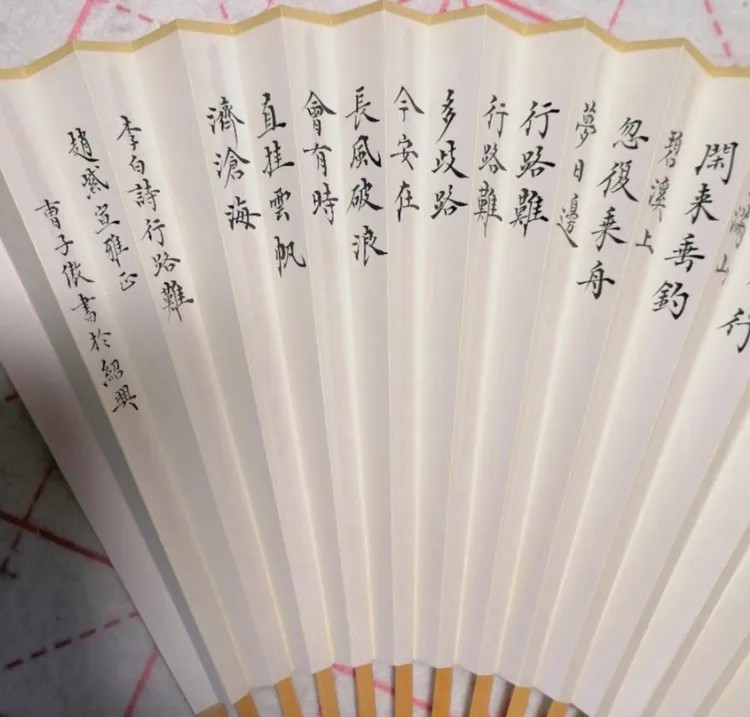 行
滿山
閑来垂釣
碧溪上
忽復乘舟
夢日邊
行路難
行路難
多歧路
今安在
長風破浪
會有時
直挂雲帆
濟滄海
李白詩行路難
趙宣雅正
曹子傲書於紹興